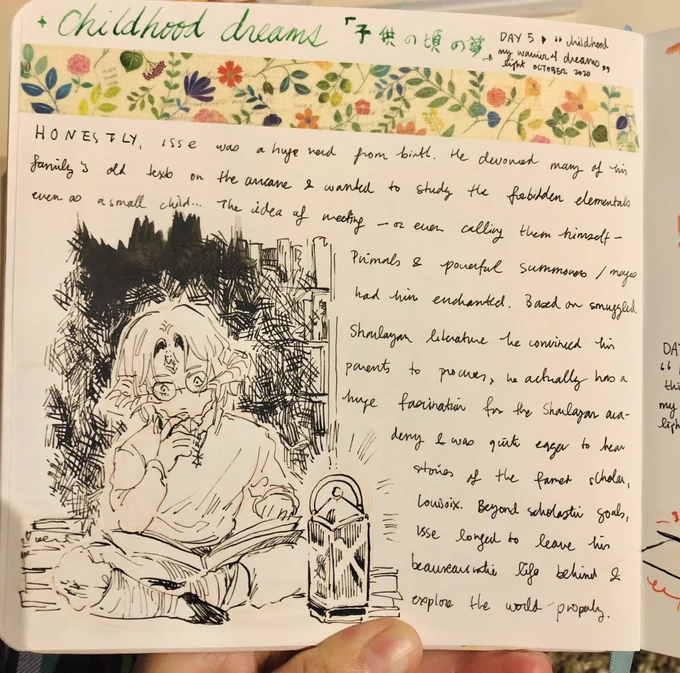 + Childhood dreams 「子供の頃の夢」
DAY 5 ▸ "childhood
dreams"
my warrior of
light OCTOBER 2020
HONESTLY, Isse was a huge nerd from birth. He devoured many of his
family's old texts on the arcane & wanted to study the forbidden elementals
even as a small child... The idea of meeting — or even calling them himself —
Primals & powerful summoners / mages
had him enchanted. Based on smuggled
Sharlayan literature he convinced his
parents to procure, he actually has a
huge fascination for the Sharlayan aca-
demy & was quite eager to hear
stories of the famed scholar,
Louisoix. Beyond scholastic goals,
Isse longed to leave his
beaureaucratic life behind &
explore the world properly.
DAY
my